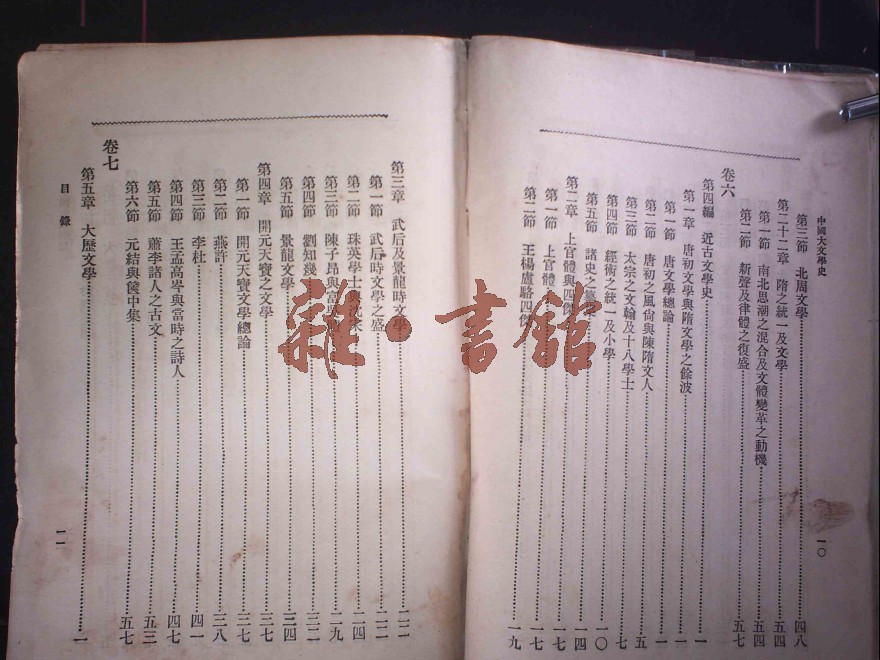 中國大文學史
一〇
第三節 北周文學 四八
第二十二章 隋之統一及文學 五四
第一節 南北思潮之混合及文體變革之動機 五四
第二節 新聲及律體之復盛 五七
卷六
第四編 近古文學史 一
第一章 唐初文學與隋文學之餘波 一
第一節 唐文學總論 一
第二節 唐初之風尙與陳隋文人 五
第三節 太宗之文翰及十八學士 七
第四節 經術之統一及小學 一〇
第五節 諸史之 一四
第二章 上官體與四傑 一七
第一節 上官體 一七
第二節 王楊盧駱四傑 一九
第三章 武后及景龍時文學 二二
第一節 武后時文學之盛 二二
第二節 珠英學士與沈宋 二四
第三節 陳子昂與富 二九
第四節 劉知幾 三二
第五節 景龍文學 三四
第四章 開元天寶之文學 三七
第一節 開元天寶文學總論 三七
第二節 燕許 三八
第三節 李杜 四一
第四節 王孟高岑與當時之詩人 四七
第五節 蕭李諸人之古文 五三
第六節 元結與篋中集 五七
卷七
第五章 大歷文學 一
目錄
一一
雜·書館